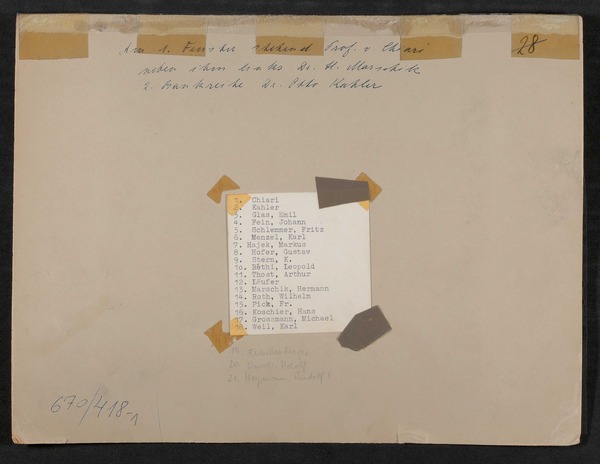 Am 1. Fenster stehend Prof. v Chiari
28
neben ihm links Dr. H. Marschik
2. Bankreihe Dr. Otto Kahler
1. Chiari
2. Kahler
3. Glas, Emil
4. Fein, Johann
5. Schlemmer, Fritz
6. Menzel, Karl
7. Hajek, Markus
8. Hofer, Gustav
9. Stern, K.
10. Réthi, Leopold
11. Thost, Arthur
12. Läufer
13. Marschik, Hermann
14. Roth, Wilhelm
15. Pick, Fr.
16. Koschier, Hans
17. Grossmann, Michael
18. Weil, Karl
19.
20.
21.
670/418-1